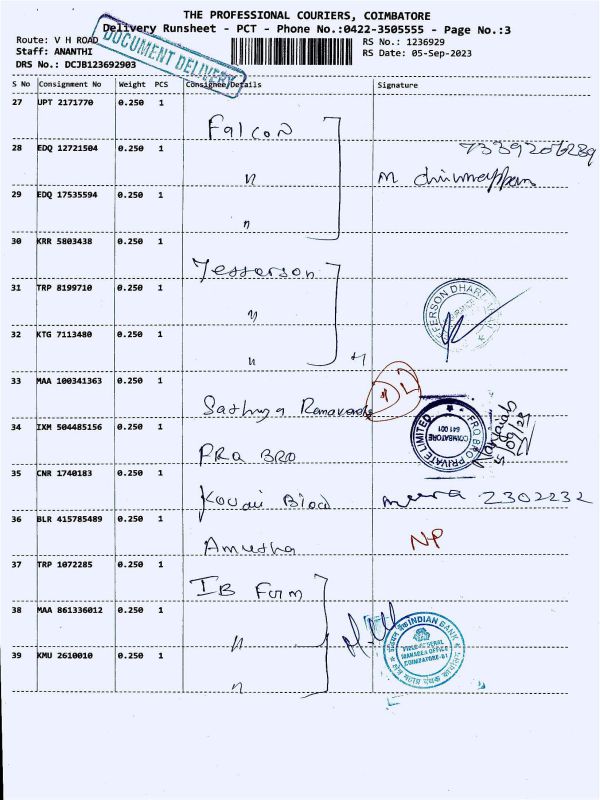 THE PROFESSIONAL COURIERS, COIMBATORE
Delivery Runsheet - PCT - Phone No.:0422-3505555 - Page No.:3
Route: V H ROAD
RS No.: 1236929
Staff: ANANTHI
RS Date: 05-Sep-2023
DRS No.: DCJB123692903
DOCUMENT DELIVERY
S No Consignment No Weight PCS Consignee/Details Signature
27 UPT 2171770 0.250 1
Falcon
28 EDQ 12721504 0.250 1
7339206289
"
M
29 EDQ 17535594 0.250 1
"
30 KRR 5803438 0.250 1
Jefferson
31 TRP 8199710 0.250 1
"
32 KTG 7113480 0.250 1
"
33 MAA 100341363 0.250 1
DL
Sathya
34 IXM 504485156 0.250 1
BRO PRIVATE LIMITED
COIMBATORE
641 001
BRO
35 CNR 1740183 0.250 1
Kovai Blood Meera 2302232
36 BLR 415785489 0.250 1
Amutha NP
37 TRP 1072285 0.250 1
IB Form
38 MAA 861336012 0.250 1
"
INDIAN BANK
FIELD GENERAL
MANAGER OFFICE
COIMBATORE-01
39 KMU 2610010 0.250 1
"